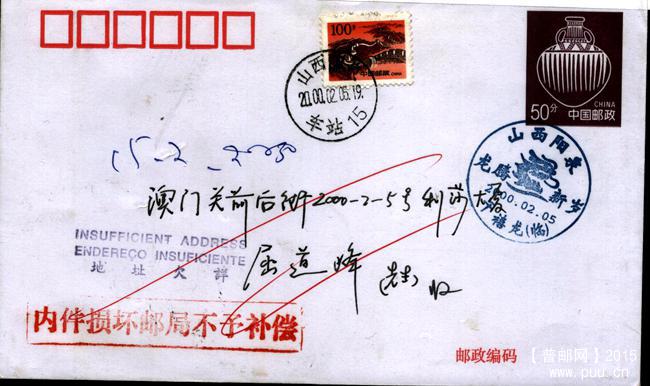 100分
中国邮政 CHINA
山西
2000.02.05.19.
15
50分
CHINA
中国邮政
山西阳泉
龙腾 新岁
2000.02.05
千禧龙(临)
15-2-2000
澳门关前后街2000-2-5号利莎大厦
INSUFFICIENT ADDRESS
ENDEREÇO INSUFICIENTE
地址欠詳
屈道峰 先生 收
内件损坏邮局不予补偿
邮政编码
【普邮网】2015
www.puu.cn